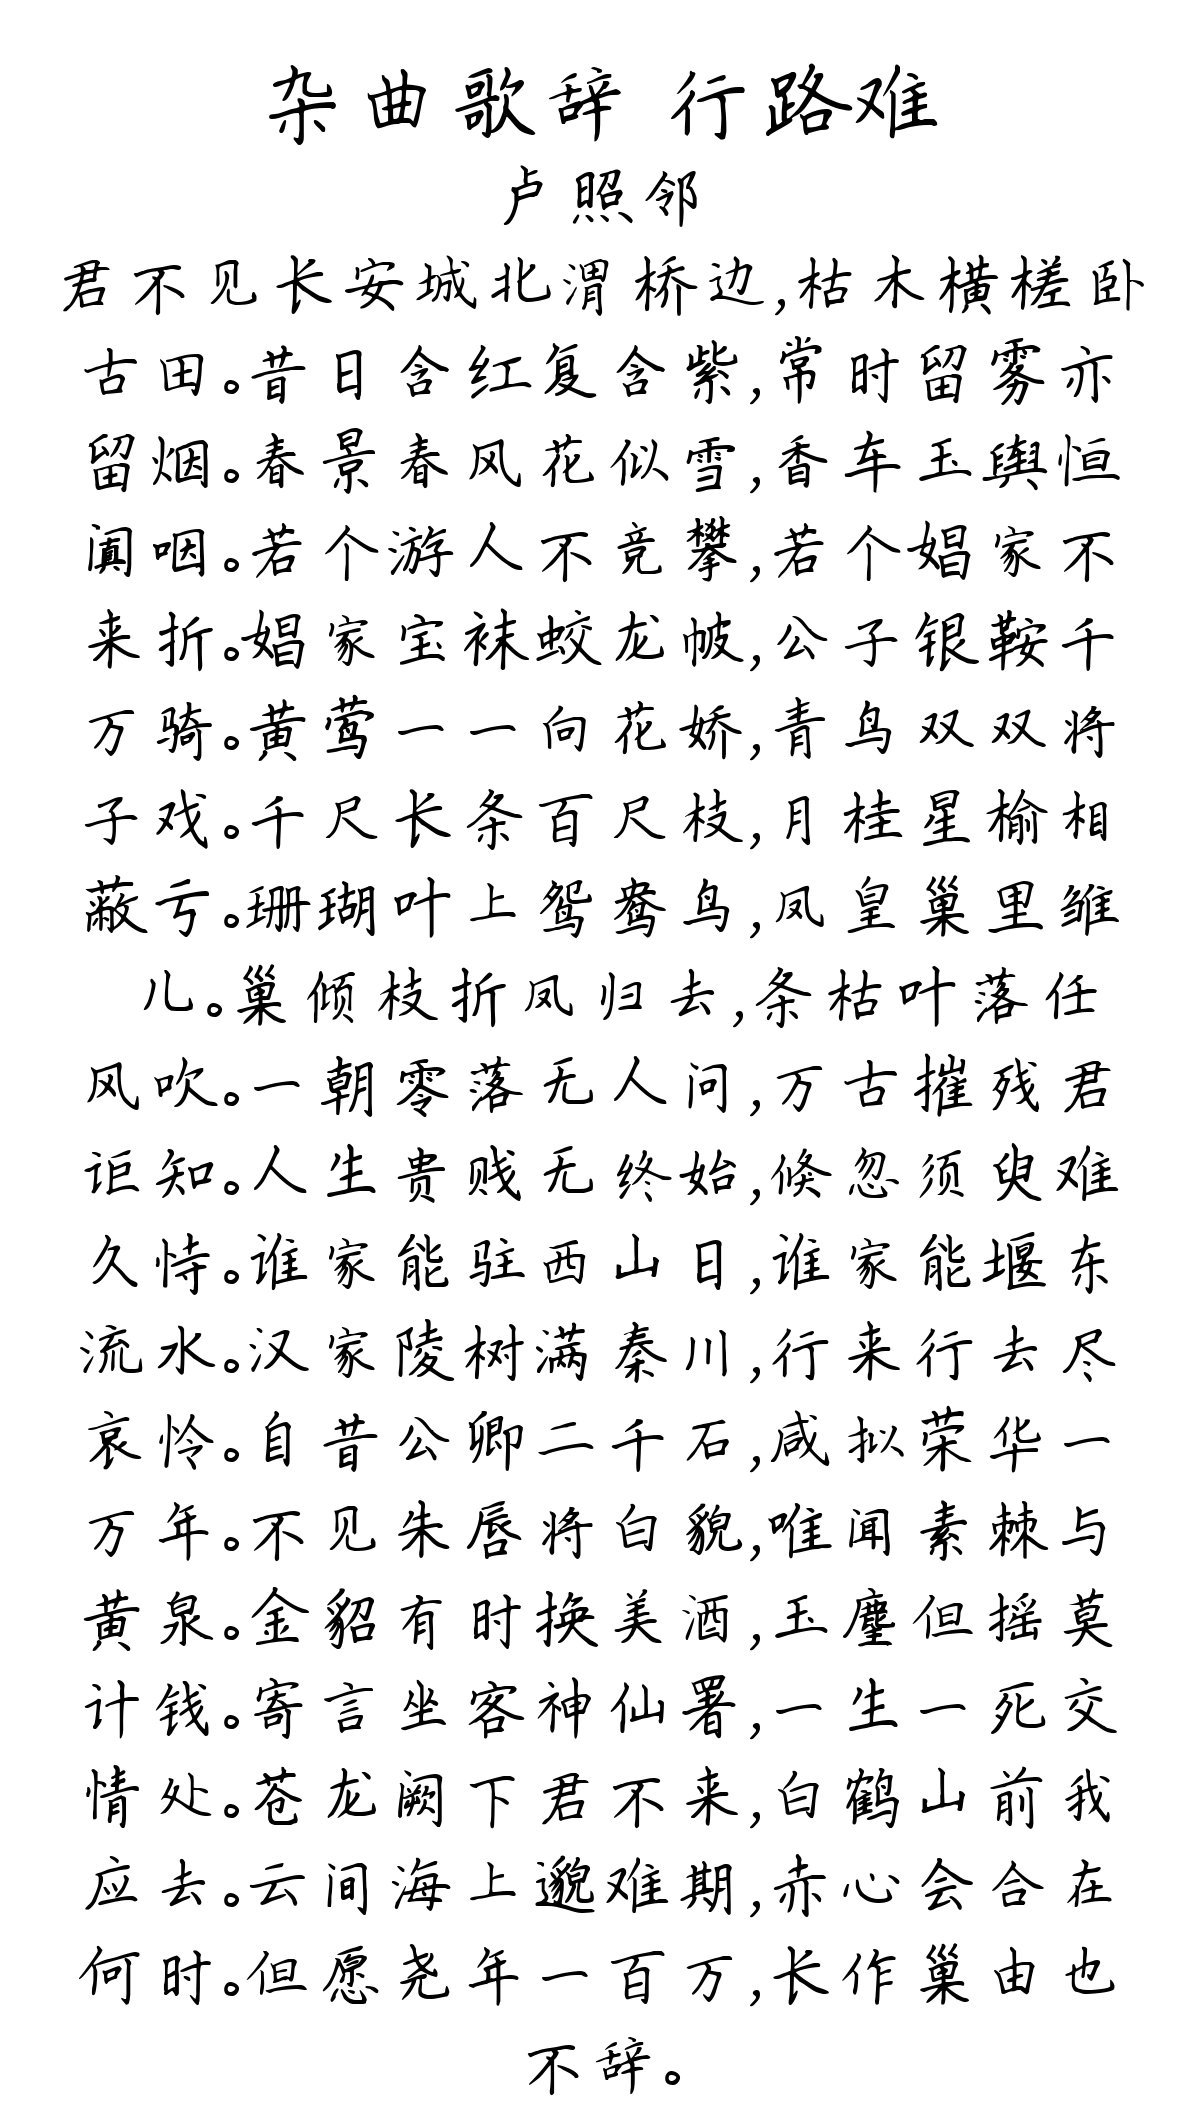 杂曲歌辞 行路难
卢照邻
君不见长安城北渭桥边,枯木横槎卧
古田。昔日含红复含紫,常时留雾亦
留烟。春景春风花似雪,香车玉舆恒
阗咽。若个游人不竞攀,若个娼家不
来折。娼家宝袜蛟龙帔,公子银鞍千
万骑。黄莺一一向花娇,青鸟双双将
子戏。千尺长条百尺枝,月桂星榆相
蔽亏。珊瑚叶上鸳鸯鸟,凤皇巢里雏
儿。巢倾枝折凤归去,条枯叶落任
风吹。一朝零落无人问,万古摧残君
讵知。人生贵贱无终始,倏忽须臾难
久恃。谁家能驻西山日,谁家能堰东
流水。汉家陵树满秦川,行来行去尽
哀怜。自昔公卿二千石,咸拟荣华一
万年。不见朱唇将白貌,唯闻素棘与
黄泉。金貂有时换美酒,玉麈但摇莫
计钱。寄言坐客神仙署,一生一死交
情处。苍龙阙下君不来,白鹤山前我
应去。云间海上邈难期,赤心会合在
何时。但愿尧年一百万,长作巢由也
不辞。